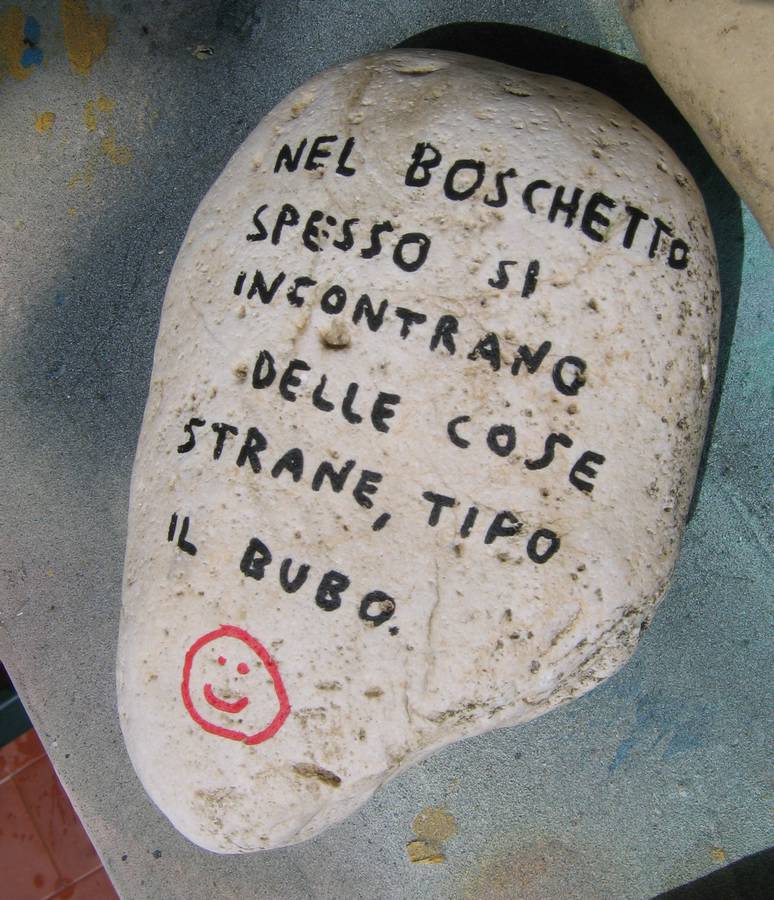 NEL BOSCHETTO
SPESSO SI
INCONTRANO
DELLE COSE
STRANE, TIPO
IL BUBO.